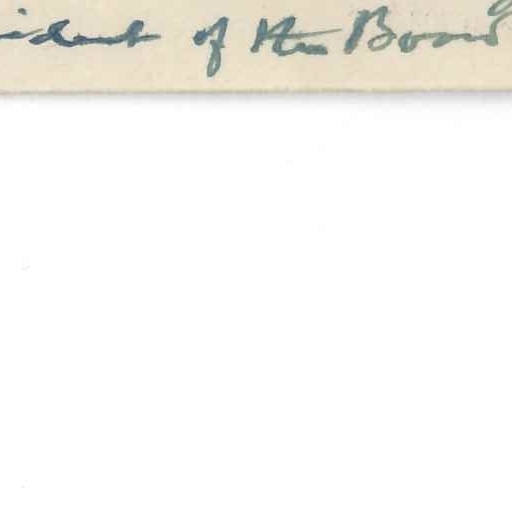 ident of the Board